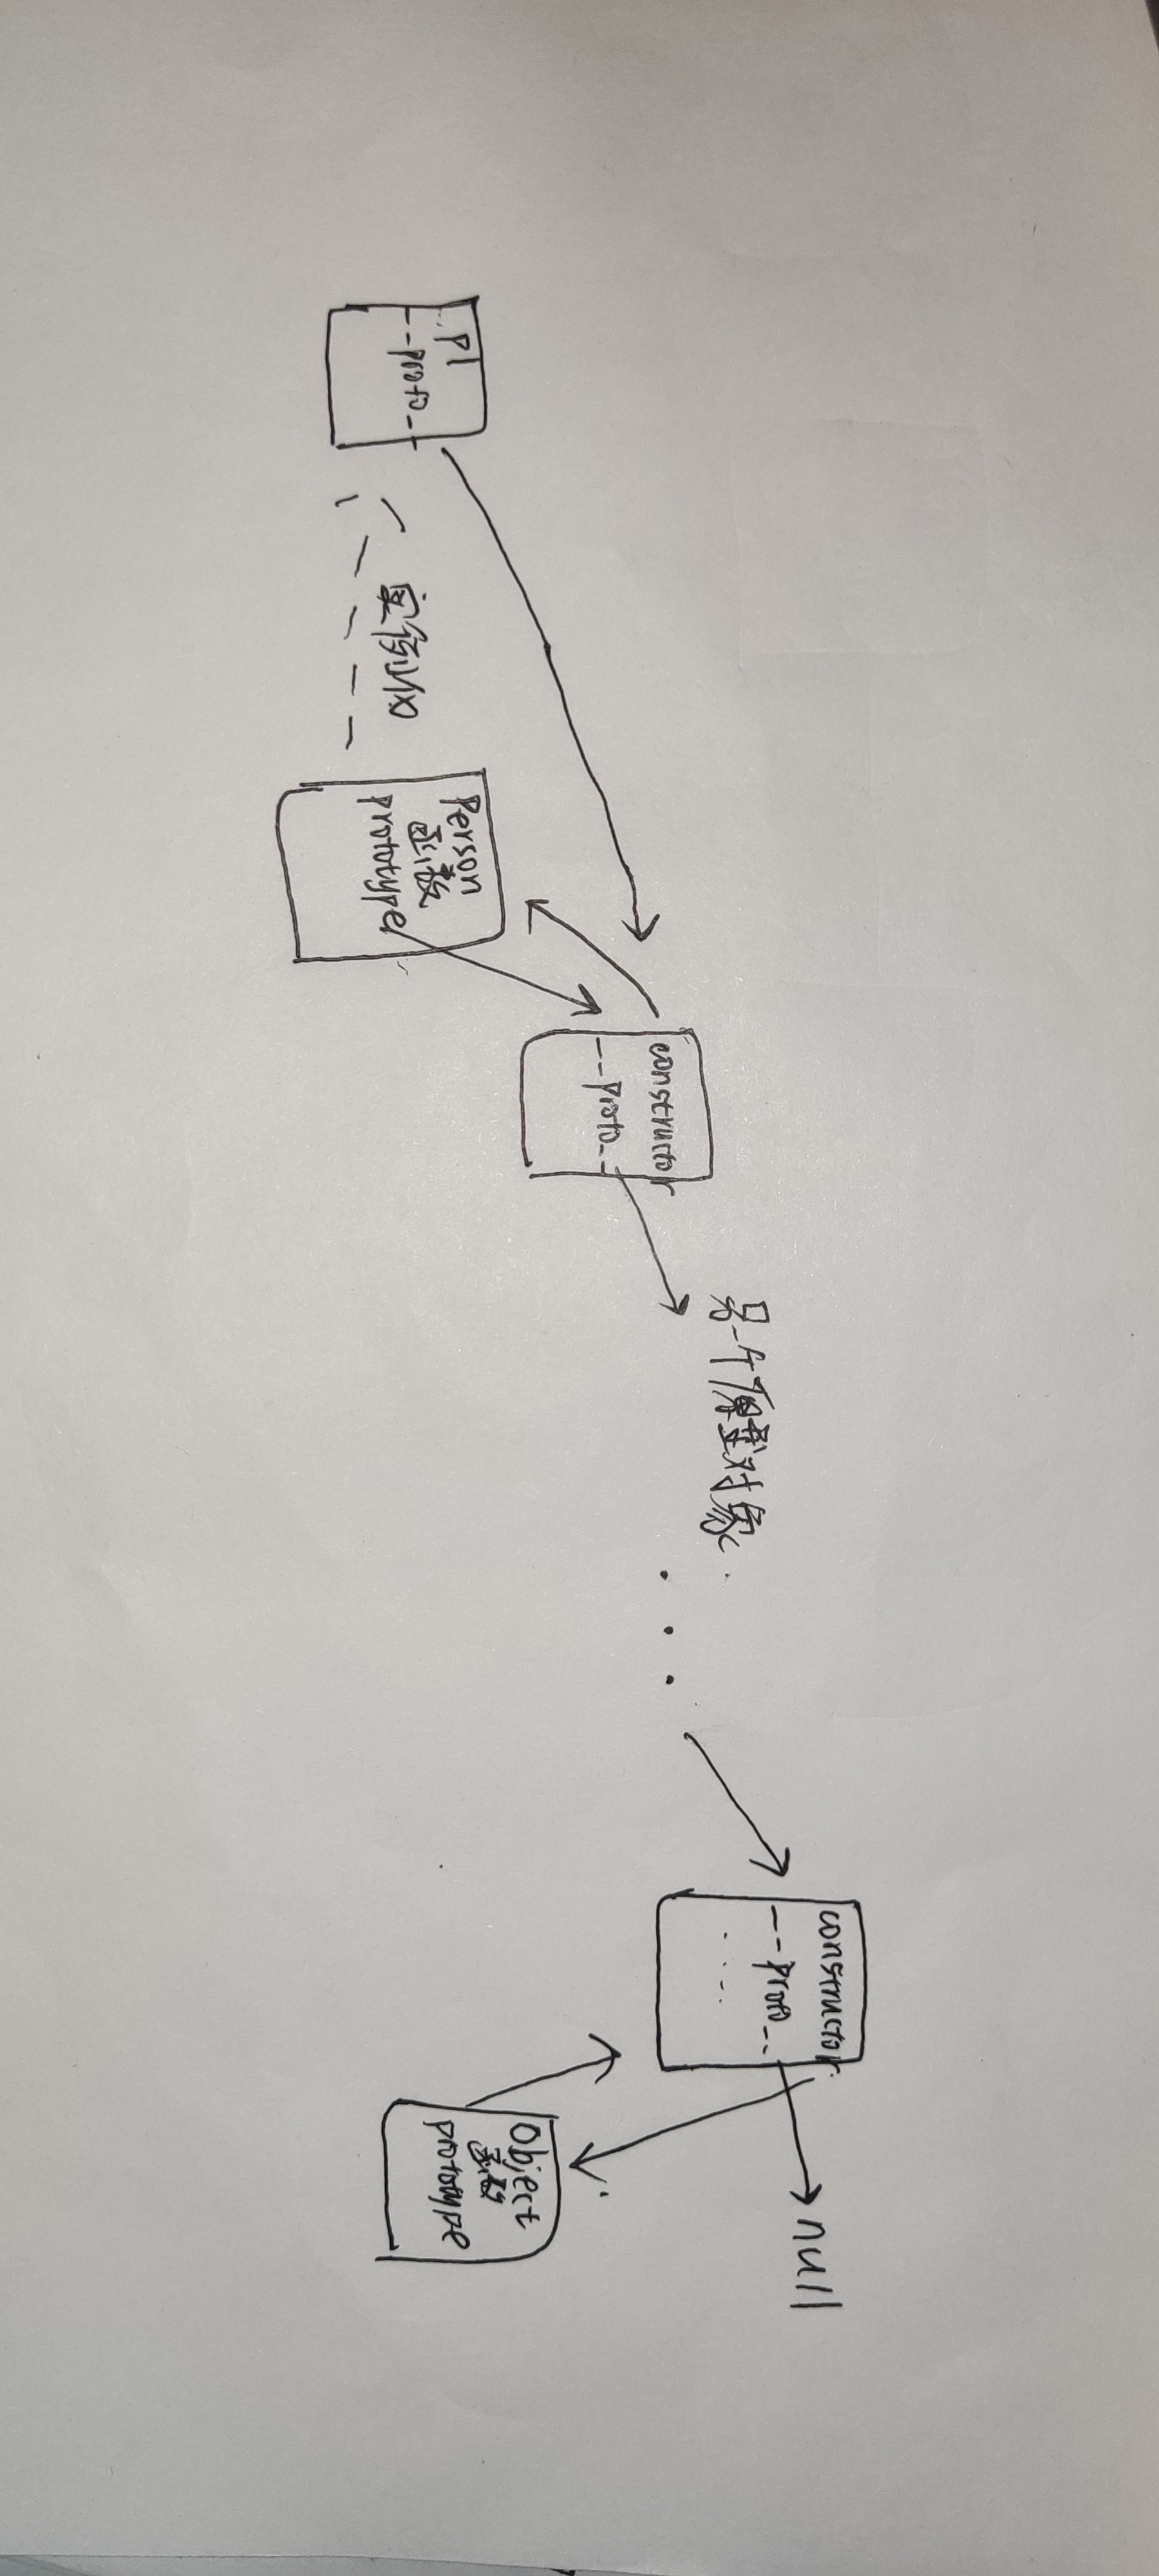 p1
__proto__
实例化
Person
函数
prototype
constructor
__proto__
另一个原型对象
...
constructor
__proto__
.....
null
Object
函数
prototype